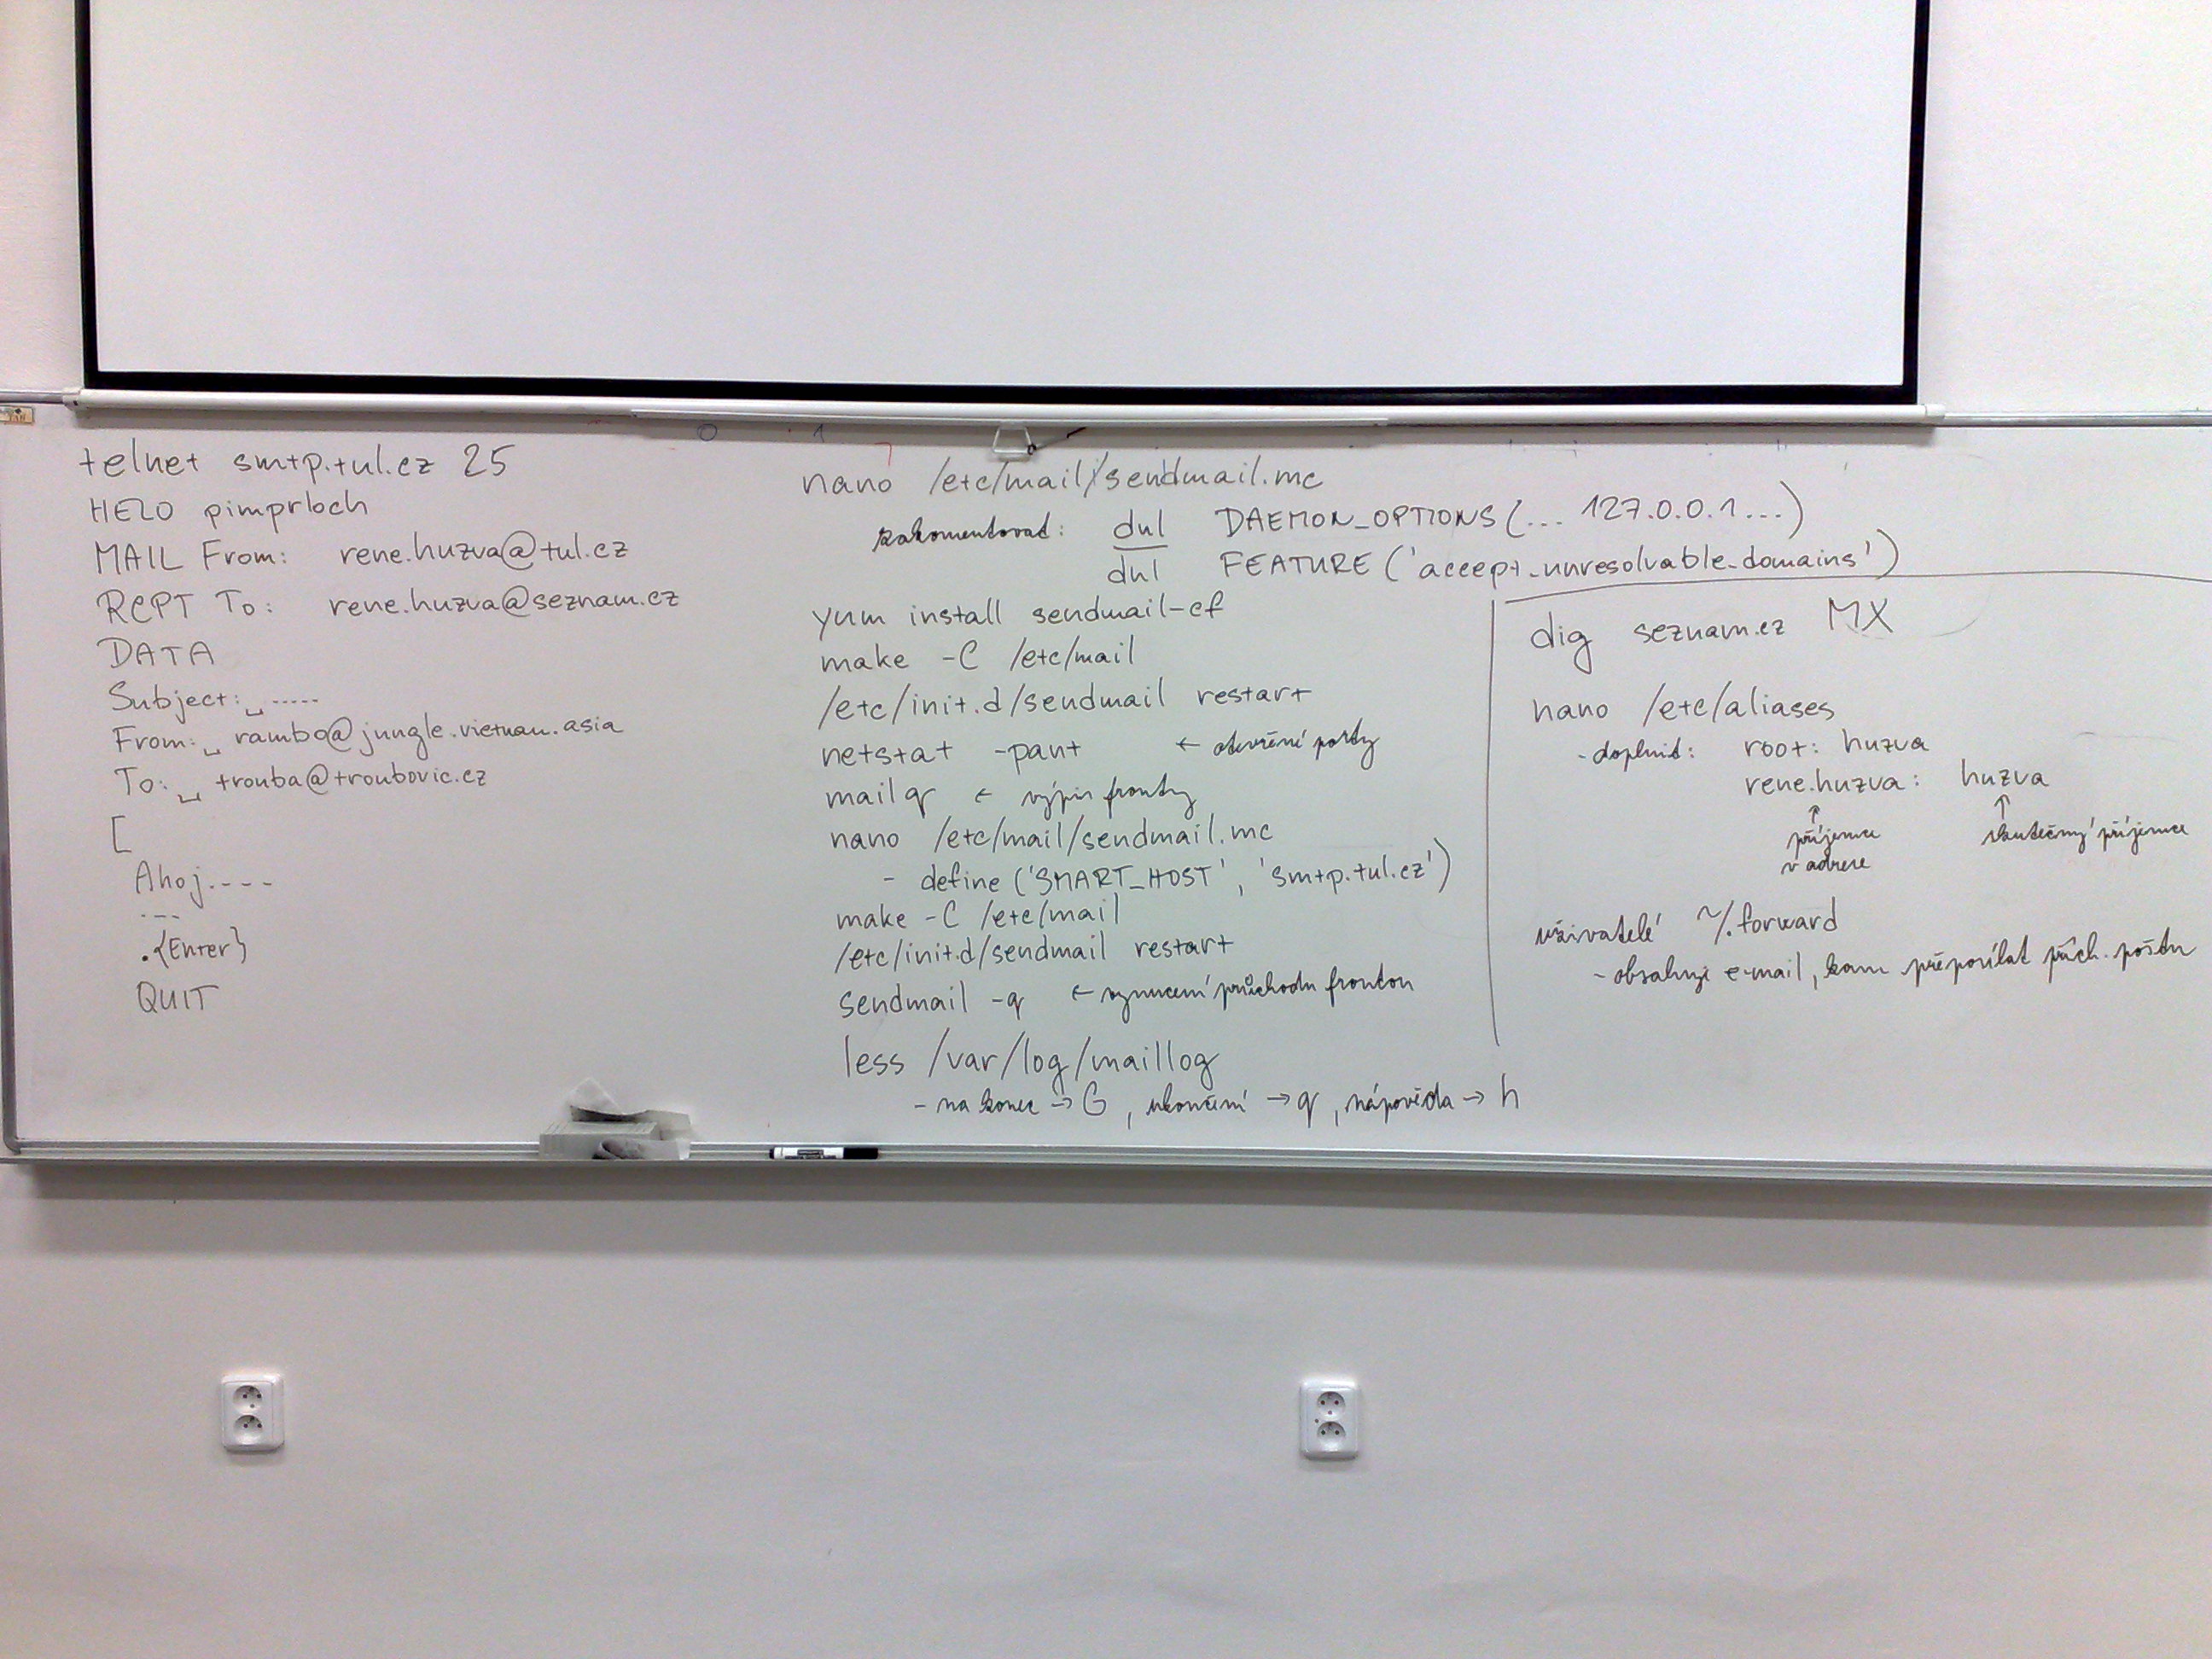 telnet smtp.tul.cz 25
HELO pimprloch
MAIL From: rene.huzva@tul.cz
RCPT To: rene.huzva@seznam.cz
DATA
Subject:␣.....
From:␣rambo@jungle.vietnam.asia
To:␣trouba@troubovic.cz
[
Ahoj....
...
.{Enter}
QUIT
nano /etc/mail/sendmail.mc
zakomentovat: dnl DAEMON_OPTIONS(... 127.0.0.1...)
dnl FEATURE('accept_unresolvable_domains')
yum install sendmail-cf
make -C /etc/mail
/etc/init.d/sendmail restart
netstat -pant ← otevřené porty
mailq ← výpis fronty
nano /etc/mail/sendmail.mc
- define('SMART_HOST', 'smtp.tul.cz')
make -C /etc/mail
/etc/init.d/sendmail restart
sendmail -q ← vynucení průchodu frontou
less /var/log/maillog
- na konec → G, ukončení → q, nápověda → h
dig seznam.cz MX
nano /etc/aliases
- doplnit: root: huzva
rene.huzva: huzva
↑ ↑
příjemce skutečný příjemce
v adrese
uživatelé ~/.forward
- obsahuje e-mail, kam přeposílat přích. poštu